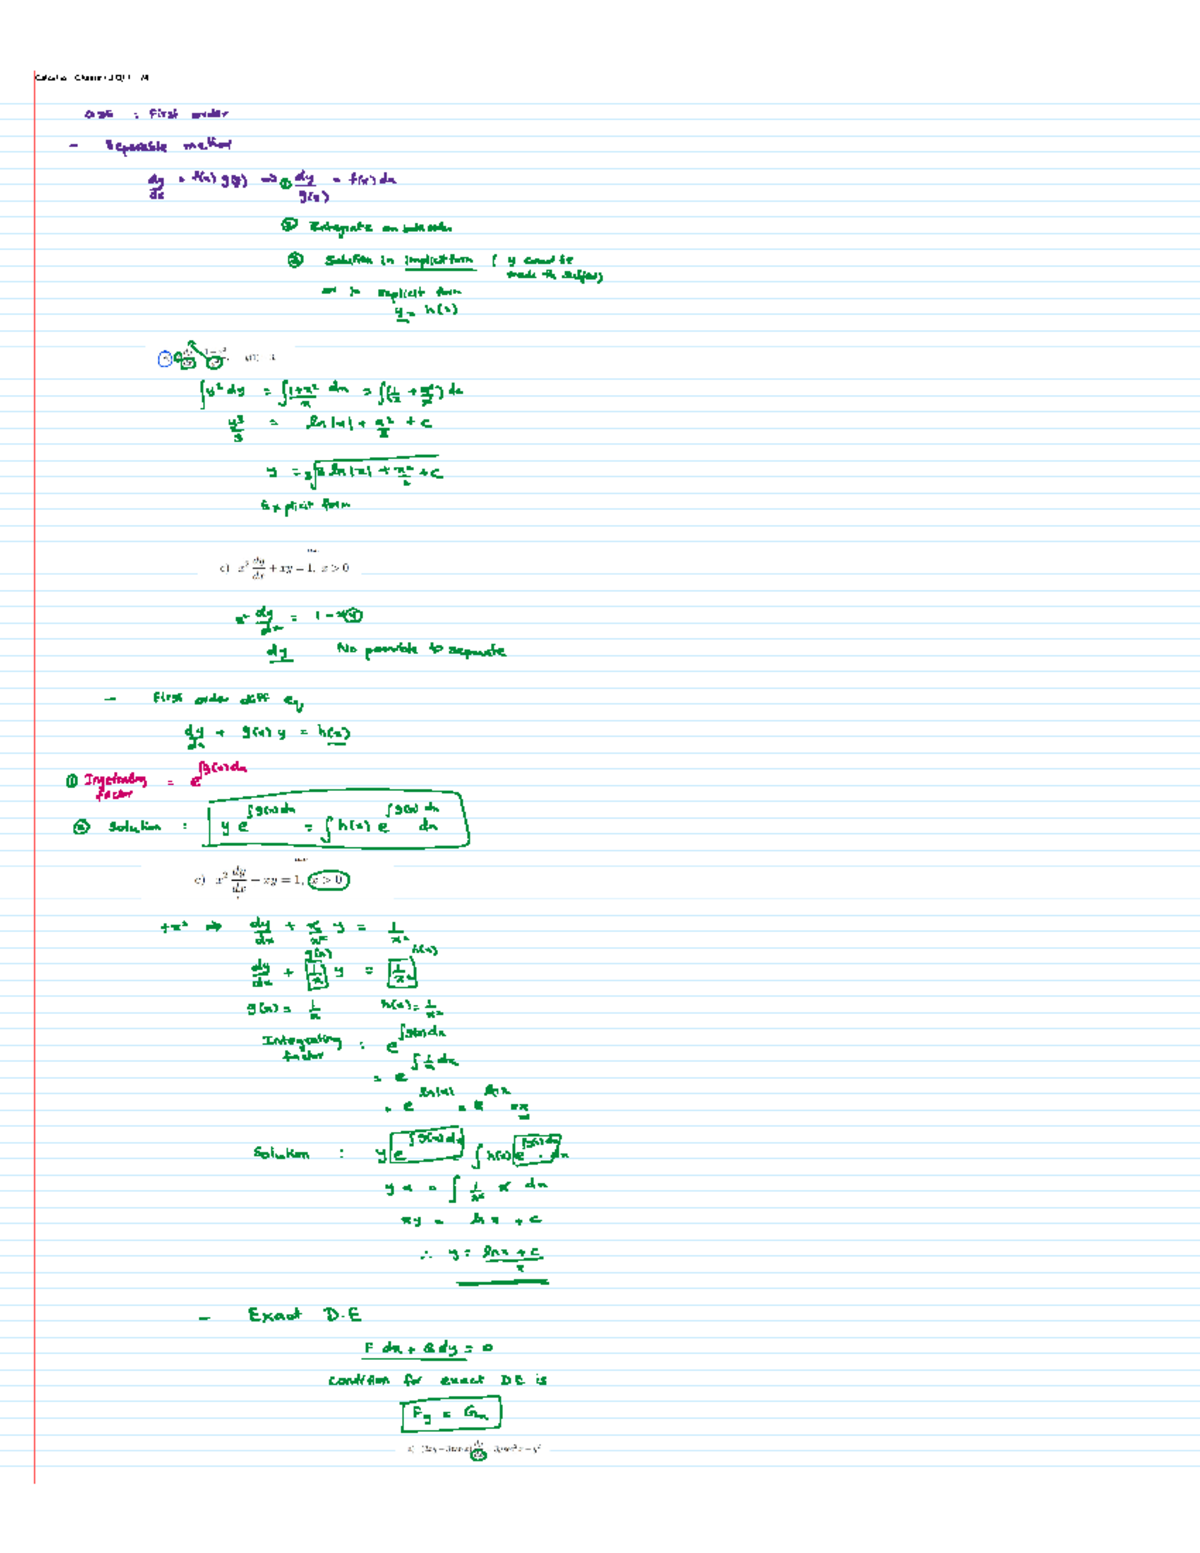 ODE : First order
- Separable method
dy/dx = f(x) g(y) ⇒ ① dy/g(y) = f(x) dx
② Integrate on both sides
③ Solution in implicit form ( y cannot be
made the subject)
or in explicit form
y = h(x)
∫y² dy = ∫(1+x²)/x dx = ∫(1/x + x²/x) dx
y³/3 = ln|x| + x²/2 + c
y = 3√(3 ln|x| + x²/2 + c
Explicit form
c) x² dy/dx + xy = 1, x > 0
x² dy/dx = 1 - xy
dy No possible to separate
- First order diff eq
dy/dx + g(x) y = h(x)
① Integrating factor = e^∫g(x)dx
② Solution : y e^∫g(x)dx = ∫ h(x) e^∫g(x)dx dx
c) x² dy/dx + xy = 1, x > 0
÷x² ⇒ dy/dx + x/x² y = 1/x²
g(x) h(x)
dy/dx + 1/x y = 1/x²
g(x) = 1/x h(x) = 1/x²
Integrating factor : e^∫g(x)dx
= e^∫1/x dx
= e^ln|x| = e^ln x = x
Solution : y e^∫g(x)dx = ∫ h(x) e^∫g(x)dx · dx
y x = ∫ 1/x² x dx
xy = ln x + c
∴ y = (ln x + c)/x
- Exact D.E
F dx + G dy = 0
condition for exact DE is
Fy = Gx